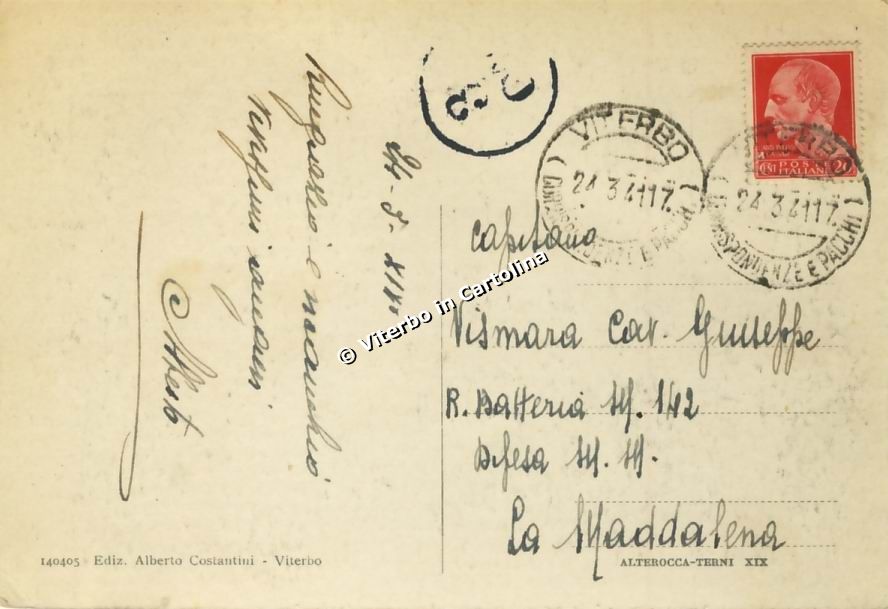 Ringrazio e ricambio
saluti
24-3-XIX°
VITERBO
24.3.41 17.
CORRISPONDENZE E PACCHI
VITERBO
24.3.41 17.
CORRISPONDENZE E PACCHI
POSTE
ITALIANE
20
Capitano
Vismara Cav. Giuseppe
R. Batteria M. 142
Difesa M. M.
La Maddalena
© Viterbo in Cartolina
140405 Ediz. Alberto Costantini - Viterbo
ALTEROCCA-TERNI XIX